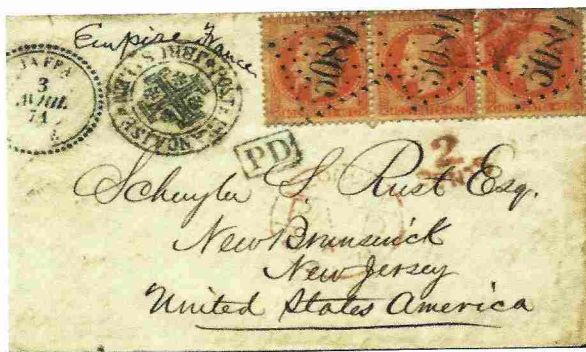 Empire France
JAFFA
3
AVRIL
71
5089
5089
5089
PD
2
CENTS
Schuyler S Rust Esq.
New Brunswick
New Jersey
United States America